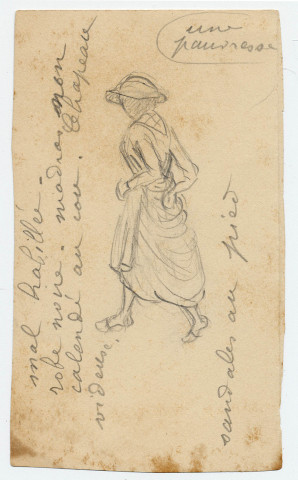 une
pauvresse
mal habillé -
robe noire - madras non
calendé au cou. Chapeau
videuse.
sandales au pied